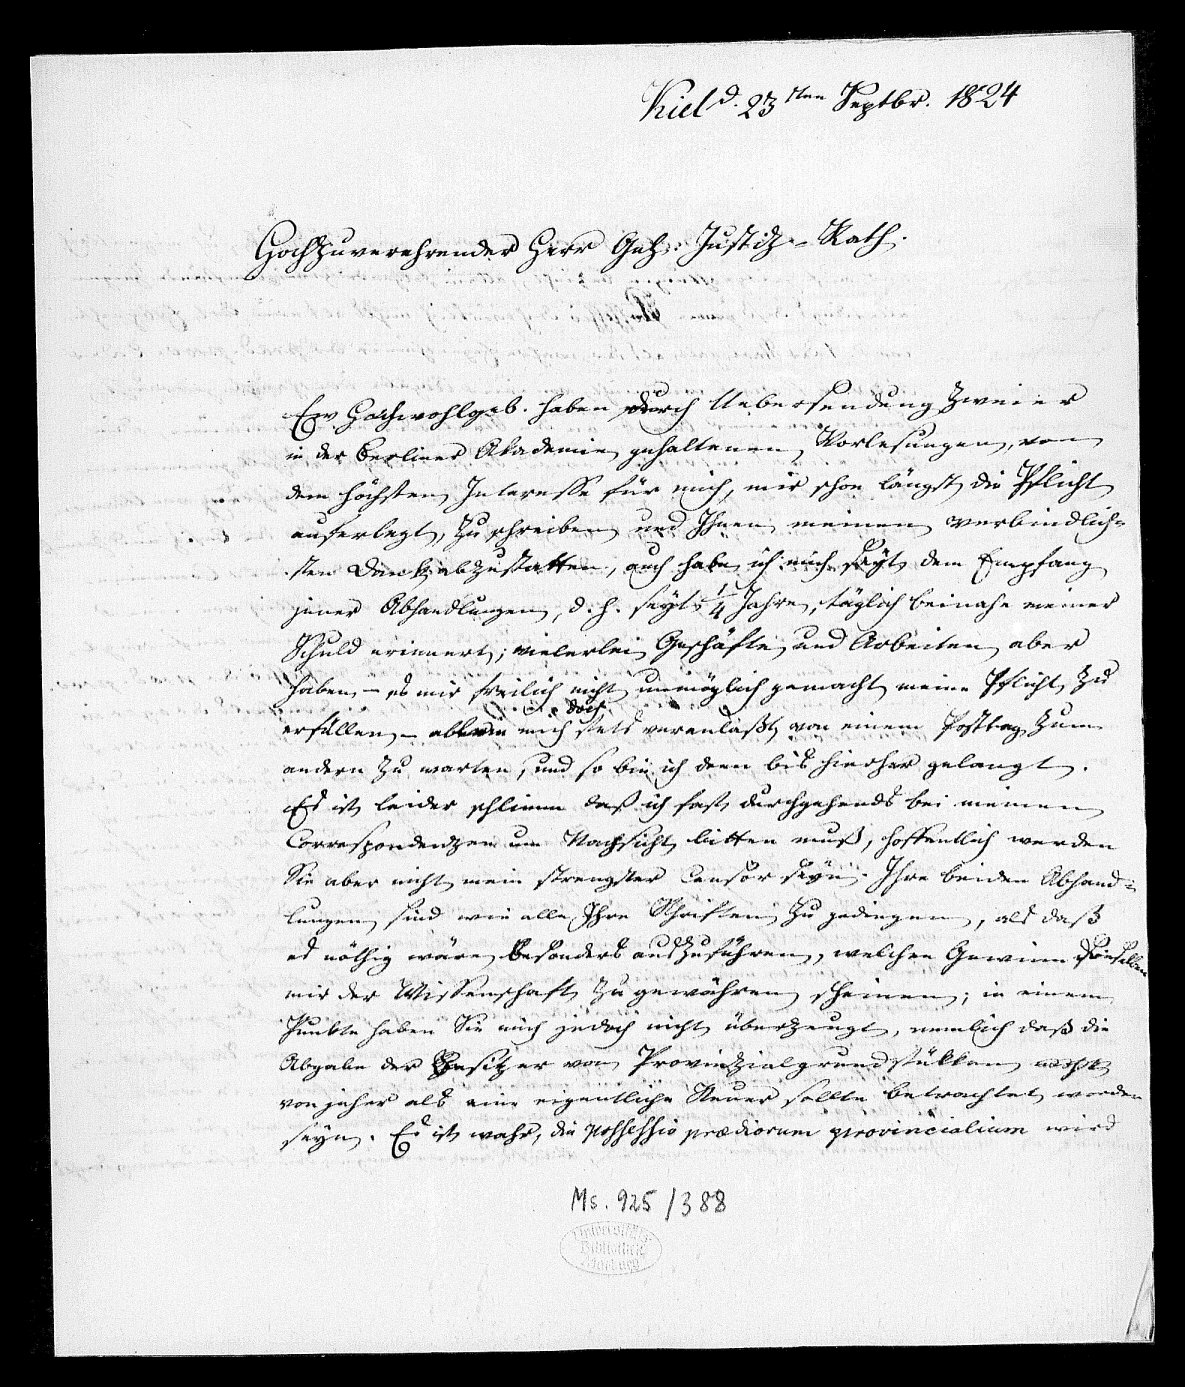 Kiel d. 23sten Septbr. 1824
Hochzuverehrender Herr Geh. Justiz-Rath.
Ew. Hochwohlgeb. haben durch Uebersendung zweier
in der Berliner Akademie gehaltenen Vorlesungen, von
dem höchsten Interesse für mich, mir schon längst die Pflicht
auferlegt, zu schreiben und Ihnen meinen verbindlich-
sten Dank abzustatten, auch habe ich mich seyt dem Empfang
jener Abhandlungen, d. h. seyt 1/4 Jahre, täglich beinahe meiner
Schuld erinnert; vielerlei Geschäfte und Arbeiten aber
haben – es mir freilich nicht unmöglich gemacht meine Pflicht zu
erfüllen, – aber doch mich stets veranlaßt von einem Posttag zum
andern zu warten, und so bin ich denn bis hierher gelangt.
Es ist leider schlimm daß ich fast durchgehends bei meinen
Correspondenzen um Nachsicht bitten muß, hoffentlich werden
Sie aber nicht mein strengster Censor seyn. Ihre beiden Abhand-
lungen sind wie alle Ihre Schriften zu gediegen, als daß
es nöthig wäre besonders auszuführen, welchen Gewinn dieselben
mir der Wissenschaft zu gewähren scheinen; in einem
Punkte haben Sie mich jedoch nicht überzeugt, nemlich daß die
Abgabe der Besitzer von Provinzialgrundstükken nicht
von jeher als eine eigentliche Steuer sollte betrachtet worden
seyn. Es ist wahr, die possessio prædiorum provincialium wird
Ms. 925/388
Universitäts-
Bibliothek
Marburg